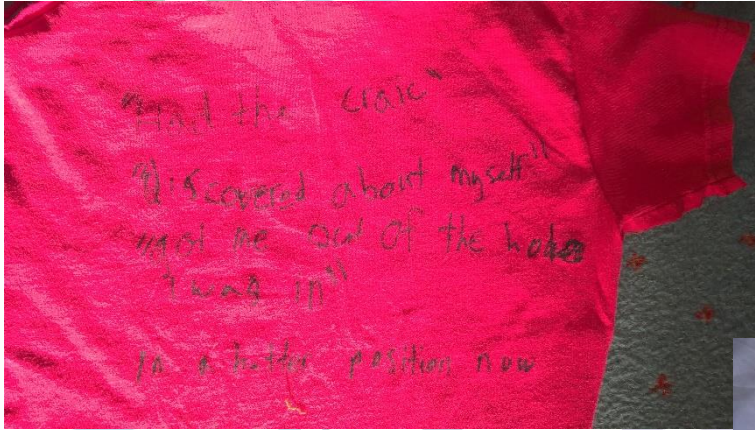 "Had the craic"
"Discovered about myself"
"Got me out of the hole
I was in"
In a better position now